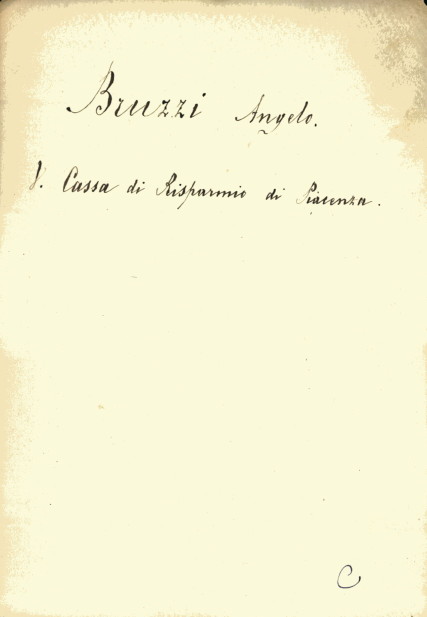 Bruzzi Angelo.
V. Cassa di Risparmio di Piacenza.
C